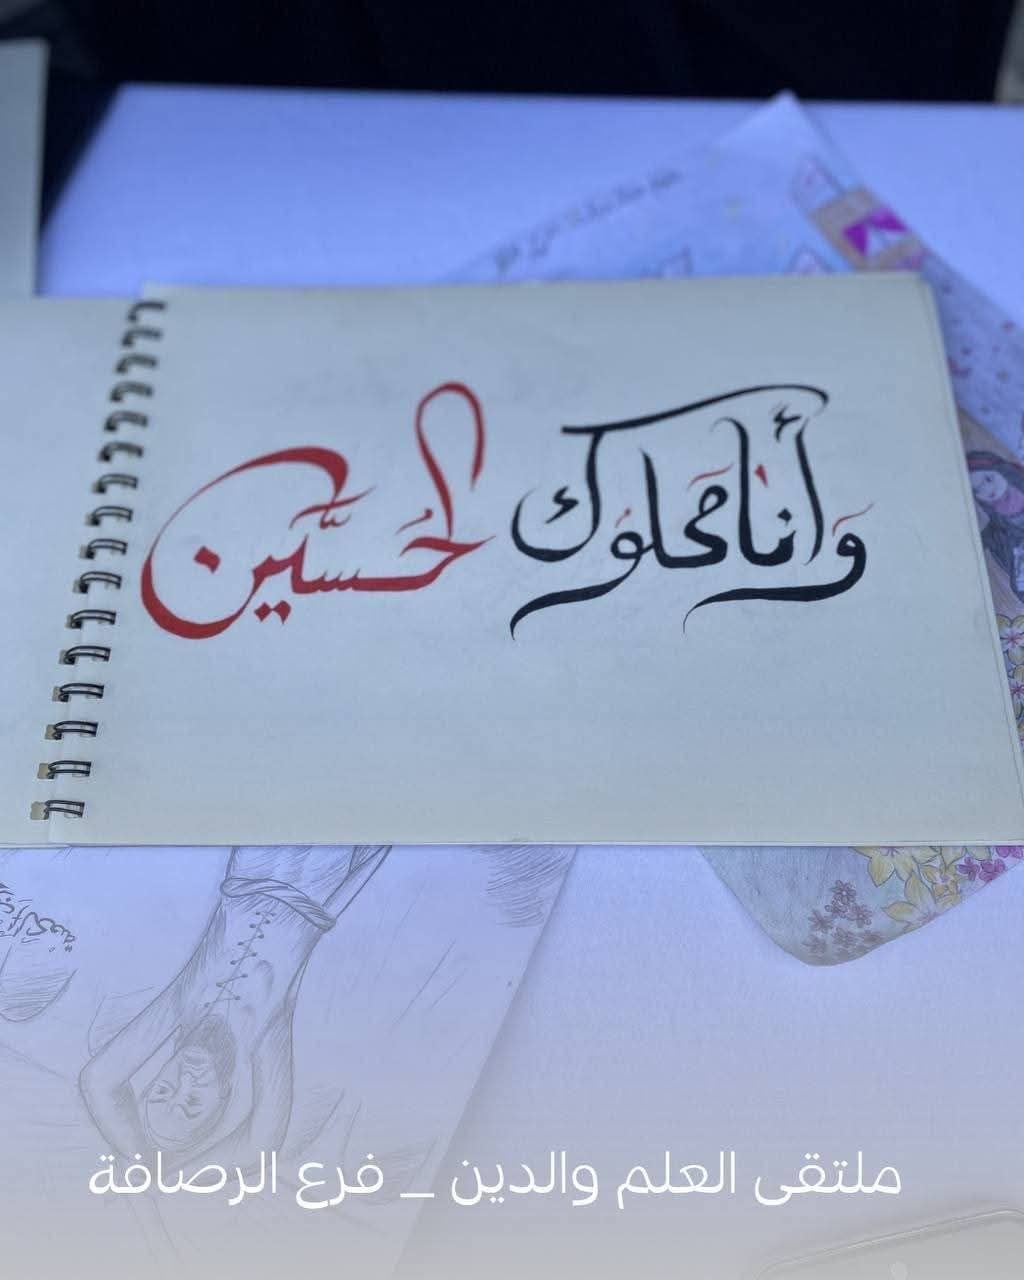 وَأنا مملوك الحُسَين
ملتقى العلم والدين _ فرع الرصافة